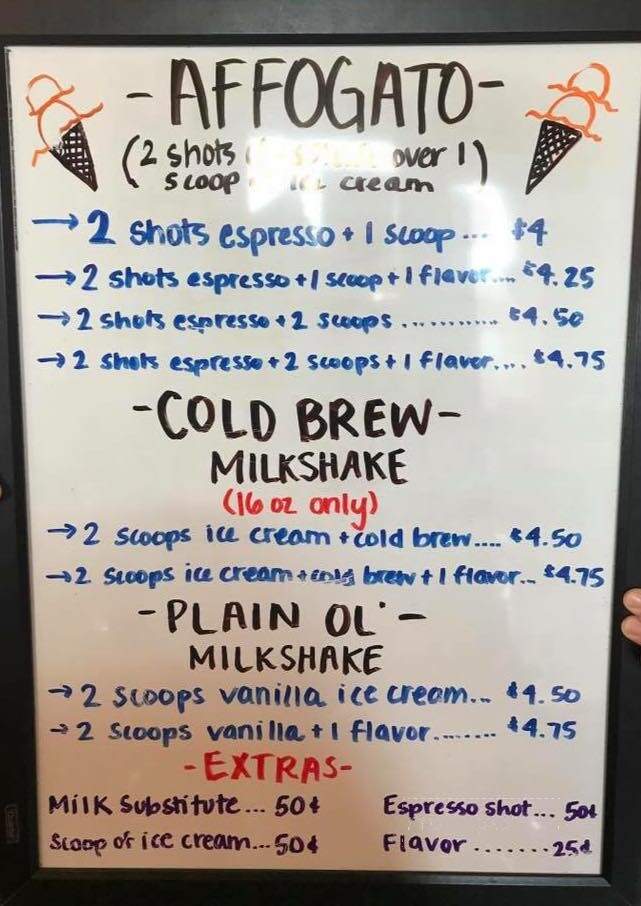 -AFFOGATO-
(2 shots over 1)
scoop ice cream
→ 2 shots espresso + 1 scoop ... $4
→ 2 shots espresso + 1 scoop + 1 flavor.... $4.25
→ 2 shots espresso + 2 scoops ............ $4.50
→ 2 shots espresso + 2 scoops + 1 flavor.... $4.75
-COLD BREW-
MILKSHAKE
(16 oz only)
→ 2 scoops ice cream + cold brew.... $4.50
→ 2 scoops ice cream + cold brew + 1 flavor... $4.75
-PLAIN OL'-
MILKSHAKE
→ 2 scoops vanilla ice cream... $4.50
→ 2 scoops vanilla + 1 flavor......... $4.75
-EXTRAS-
Milk Substitute... 50¢ Espresso shot... 50¢
Scoop of ice cream...50¢ Flavor .......25¢